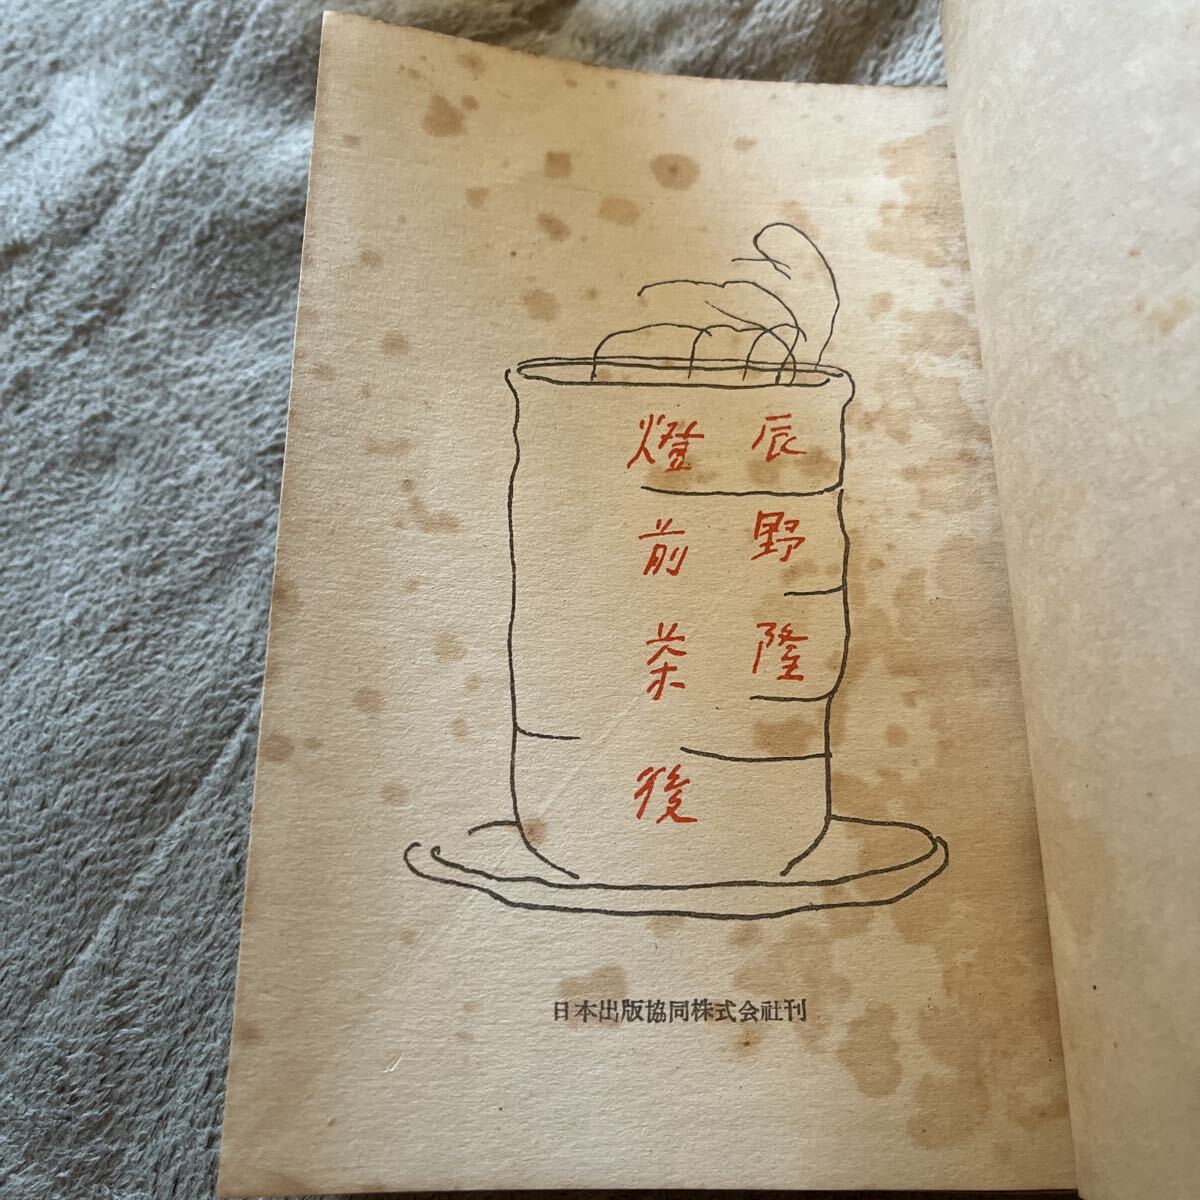 辰野隆
燈前茶後
日本出版協同株式会社刊